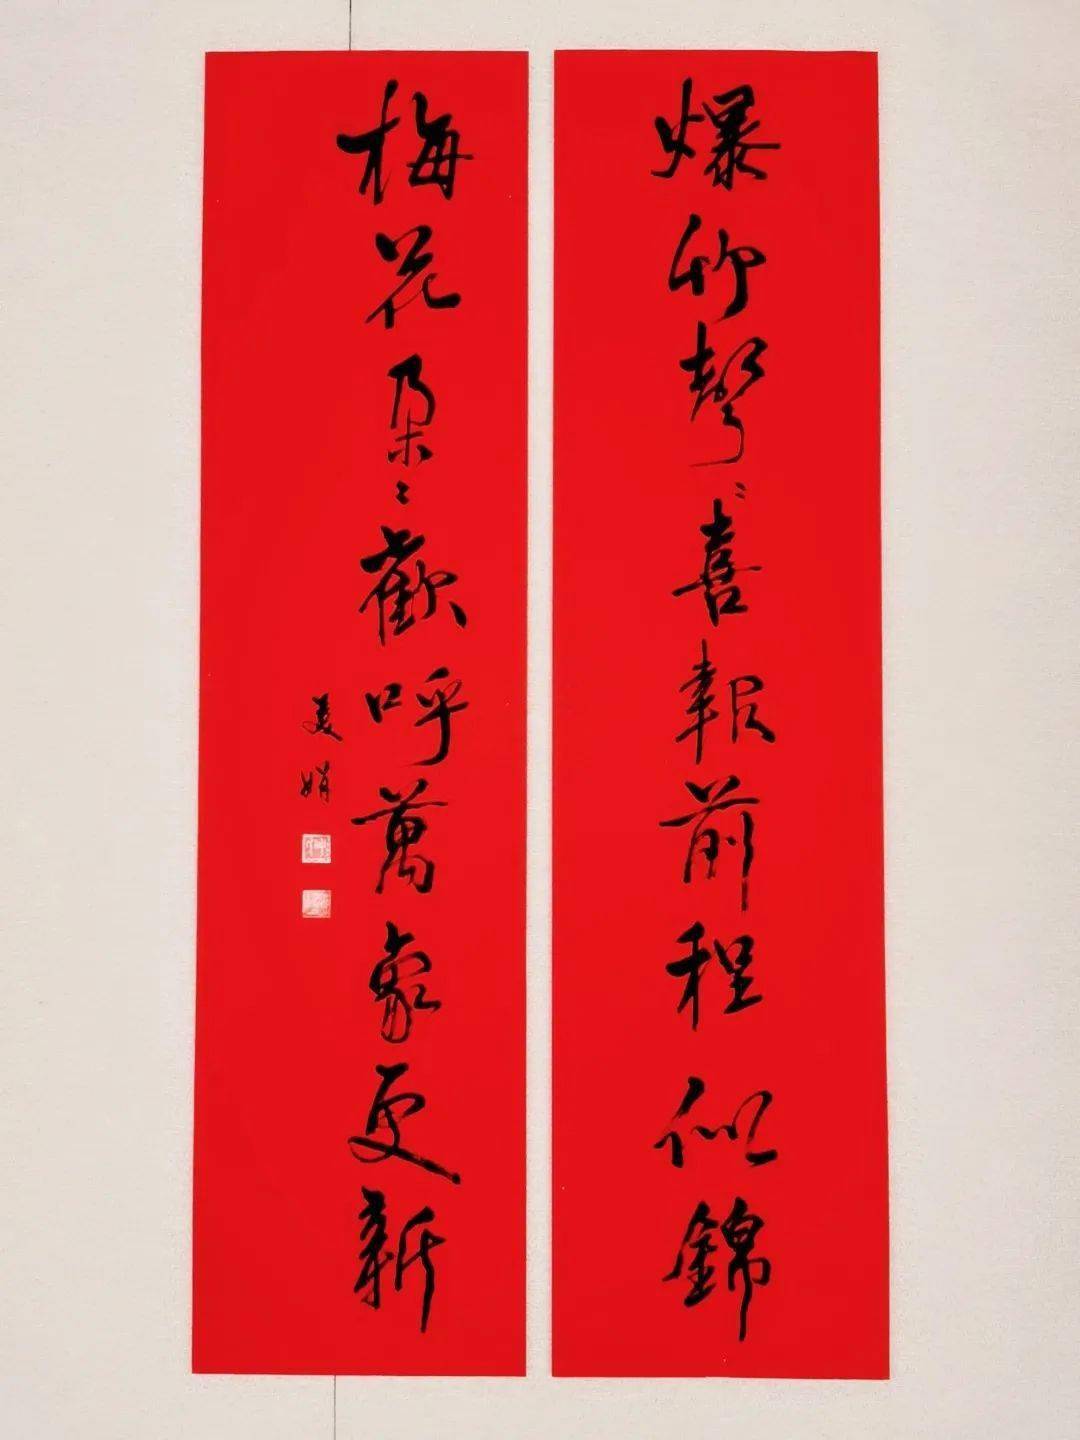 爆竹聲〻喜報前程似錦
梅花朵〻歡呼萬象更新
美娟